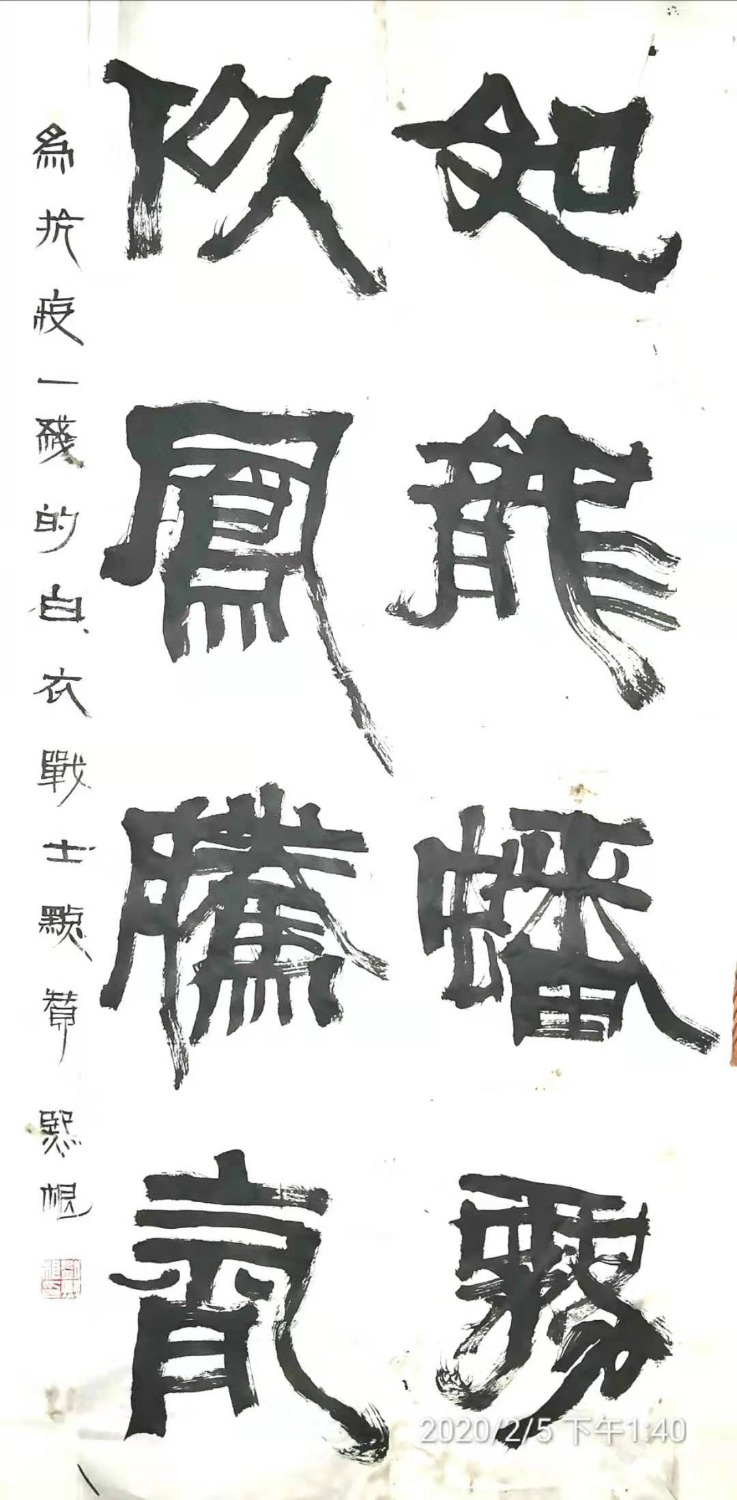 如龍蟠霧
似鳳騰
為抗疫一綫的白衣戰士點贊 熙
2020/2/5 下午1:40